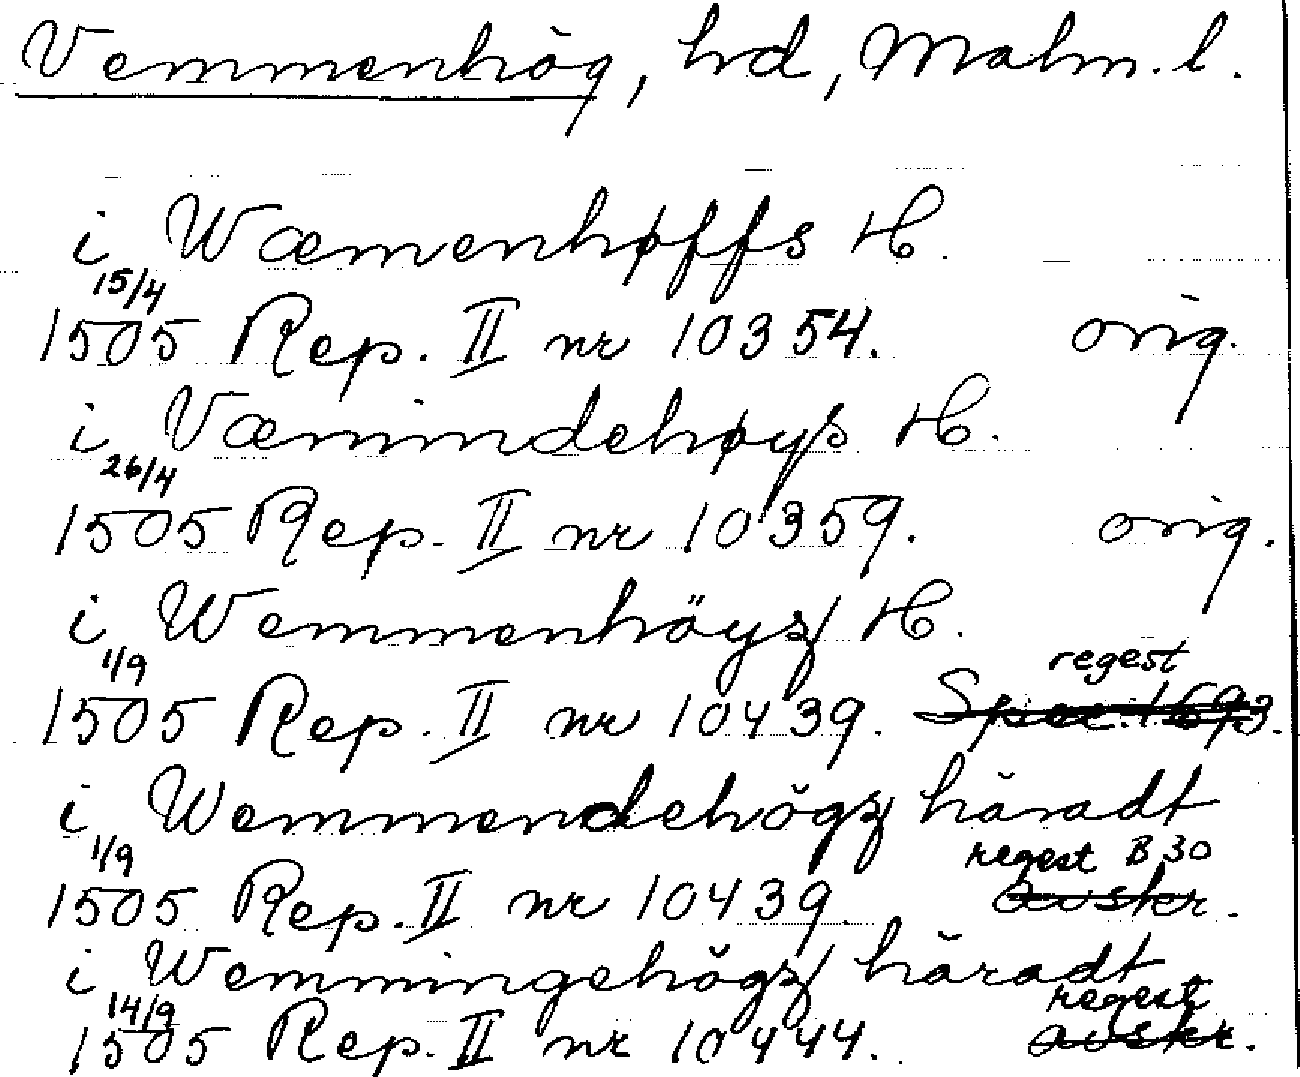 Vemmenhög, hd, Malm. l.
i Wæmenhøffs H.
15/4
1505 Rep. II nr 10354. orig.
i Væmindehøys H.
26/4
1505 Rep. II nr 10359. orig.
i Wemmenhöysz H.
1/9 regest
1505 Rep. II nr 10439. Spec. 1693.
i Wemmendehögz häradt
1/9 regest B 30
1505 Rep. II nr 10439. avskr.
i Wemmingehögz häradt
14/9 regest
1505 Rep. II nr 10444. avskr.